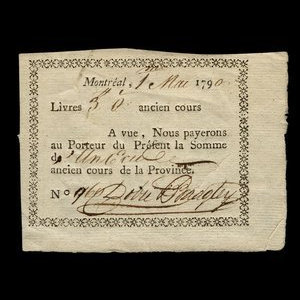 Montréal, 1 Mai 1790
Livres 3 0 ancien cours
A vue, Nous payerons
au Porteur du Préfent la Somme
d'Un Ecu
ancien cours de la Province.
No Dobie & Badgley